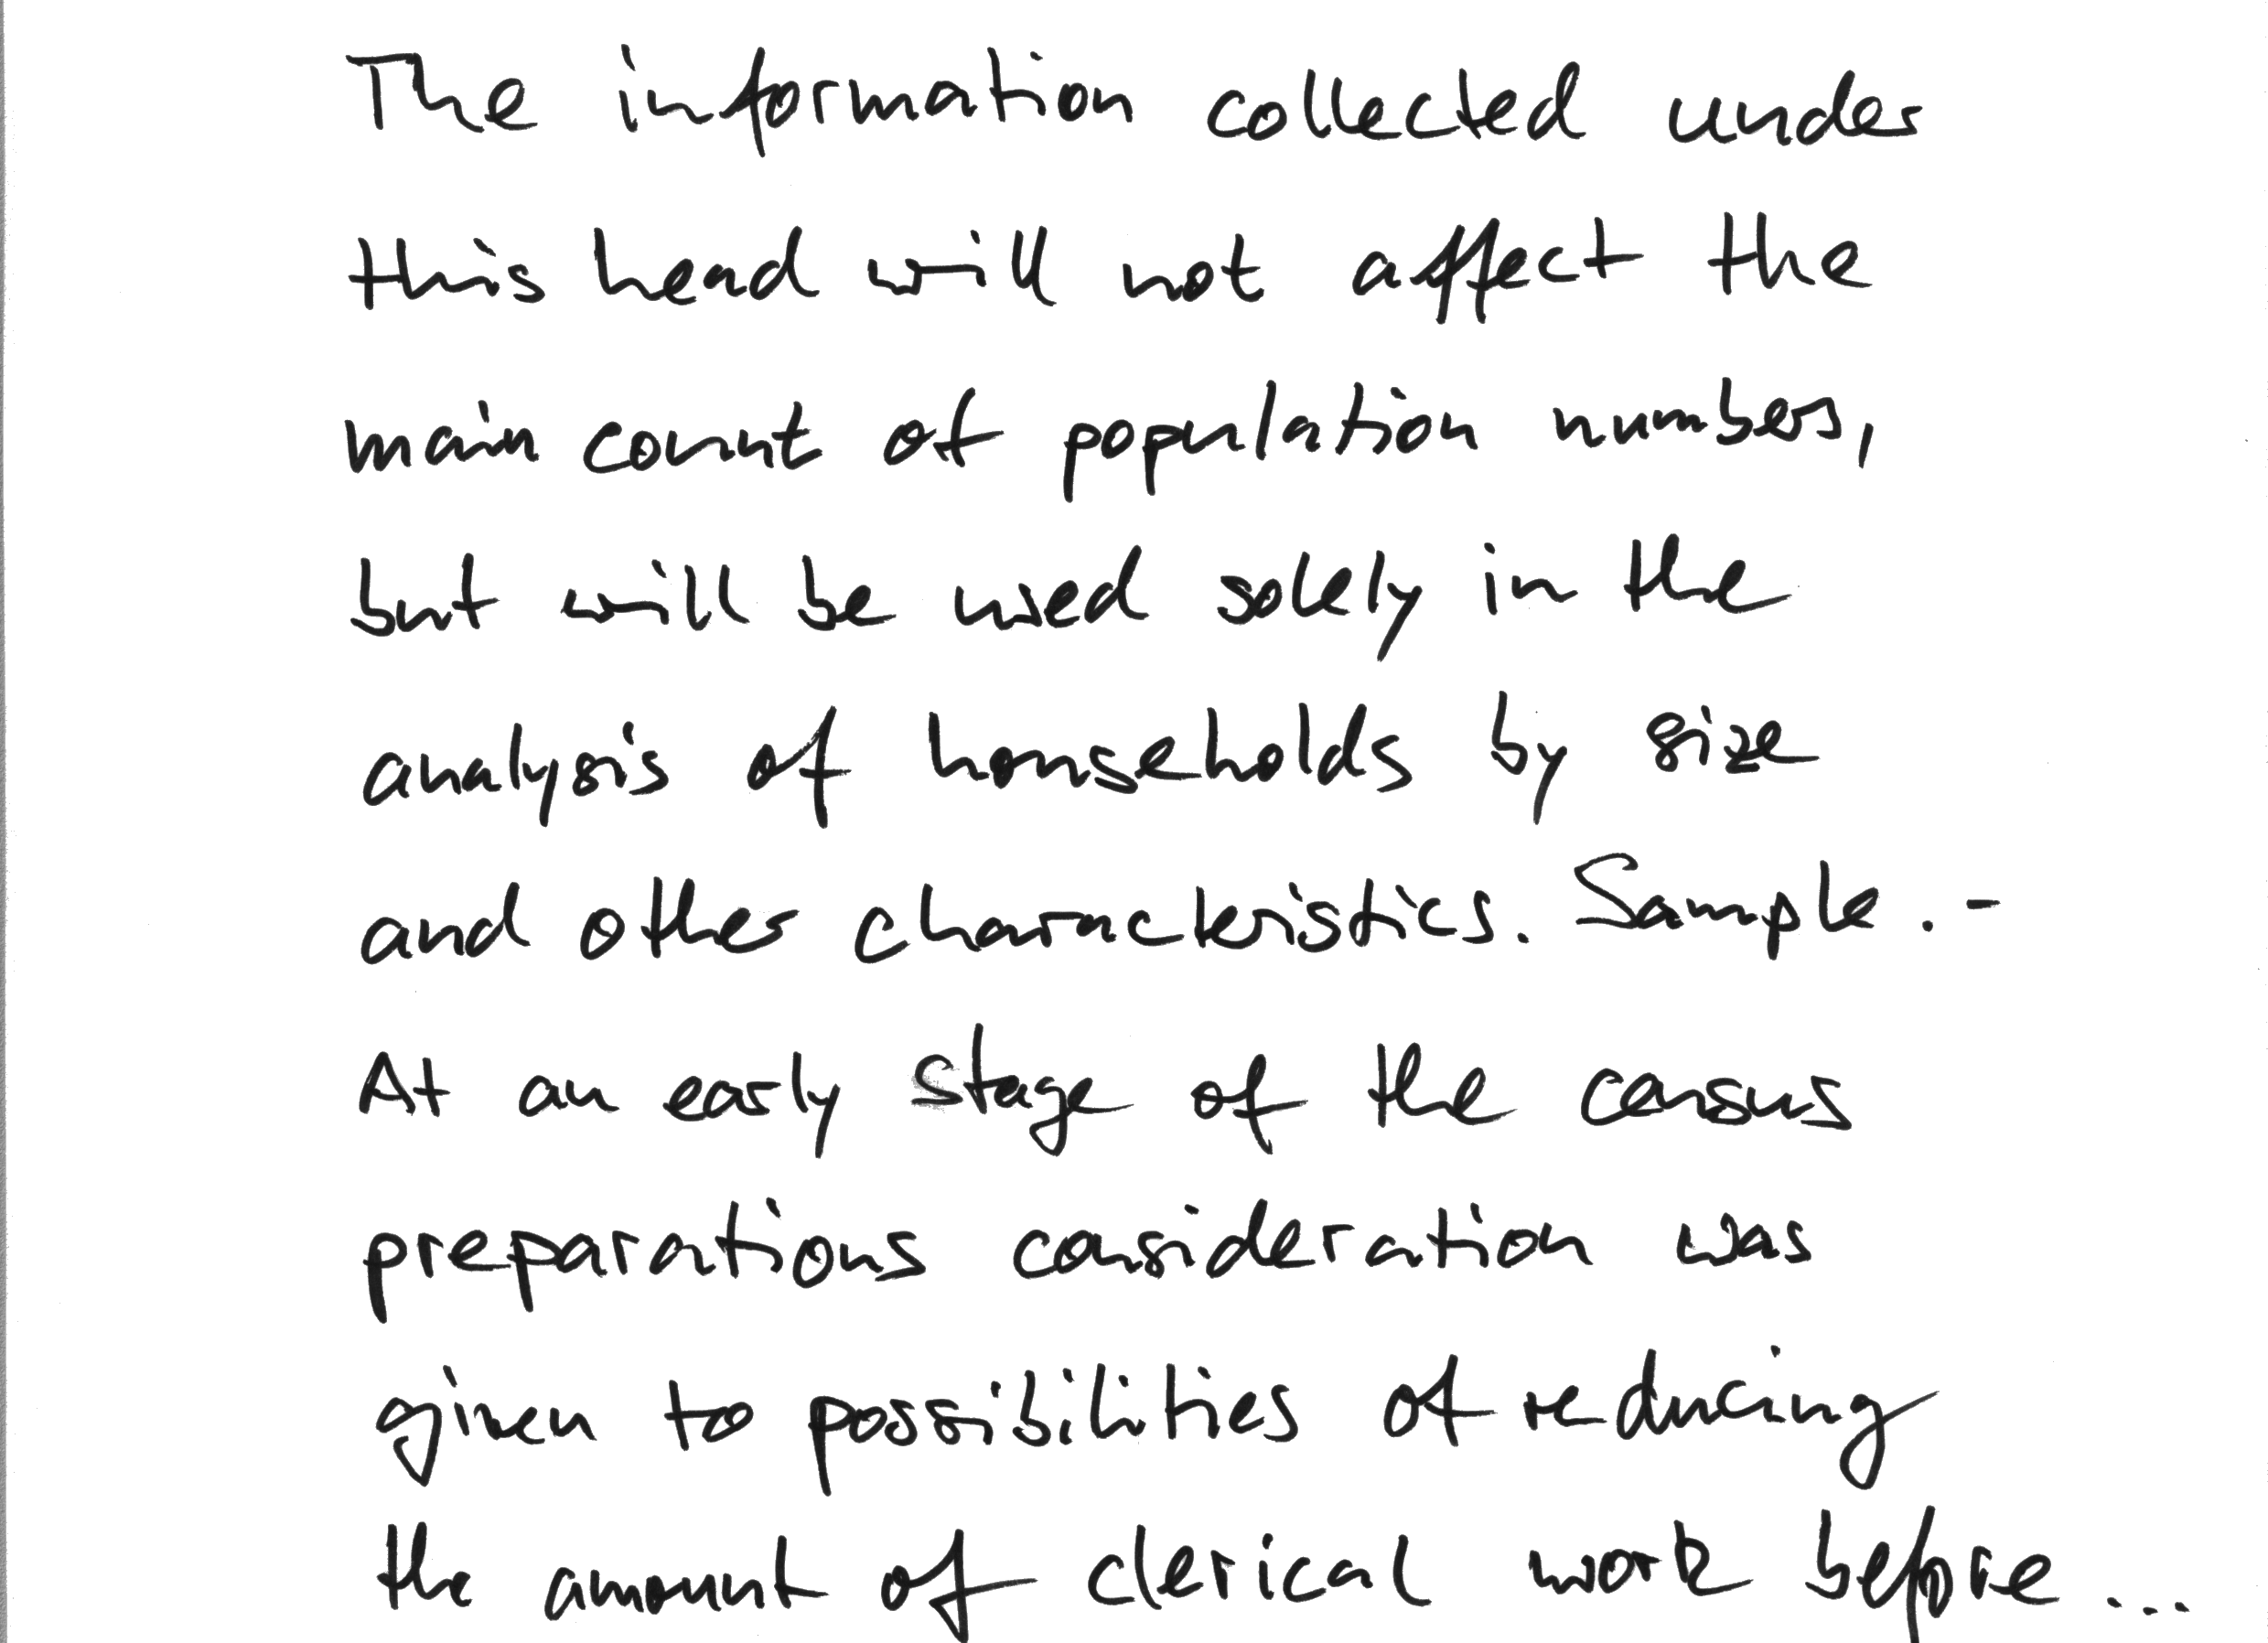 The information collected under
this head will not affect the
main count of population numbers,
but will be used solely in the
analysis of households by size
and other characteristics. Sample.-
At an early stage of the census
preparations consideration was
given to possibilities of reducing
the amount of clerical work before...